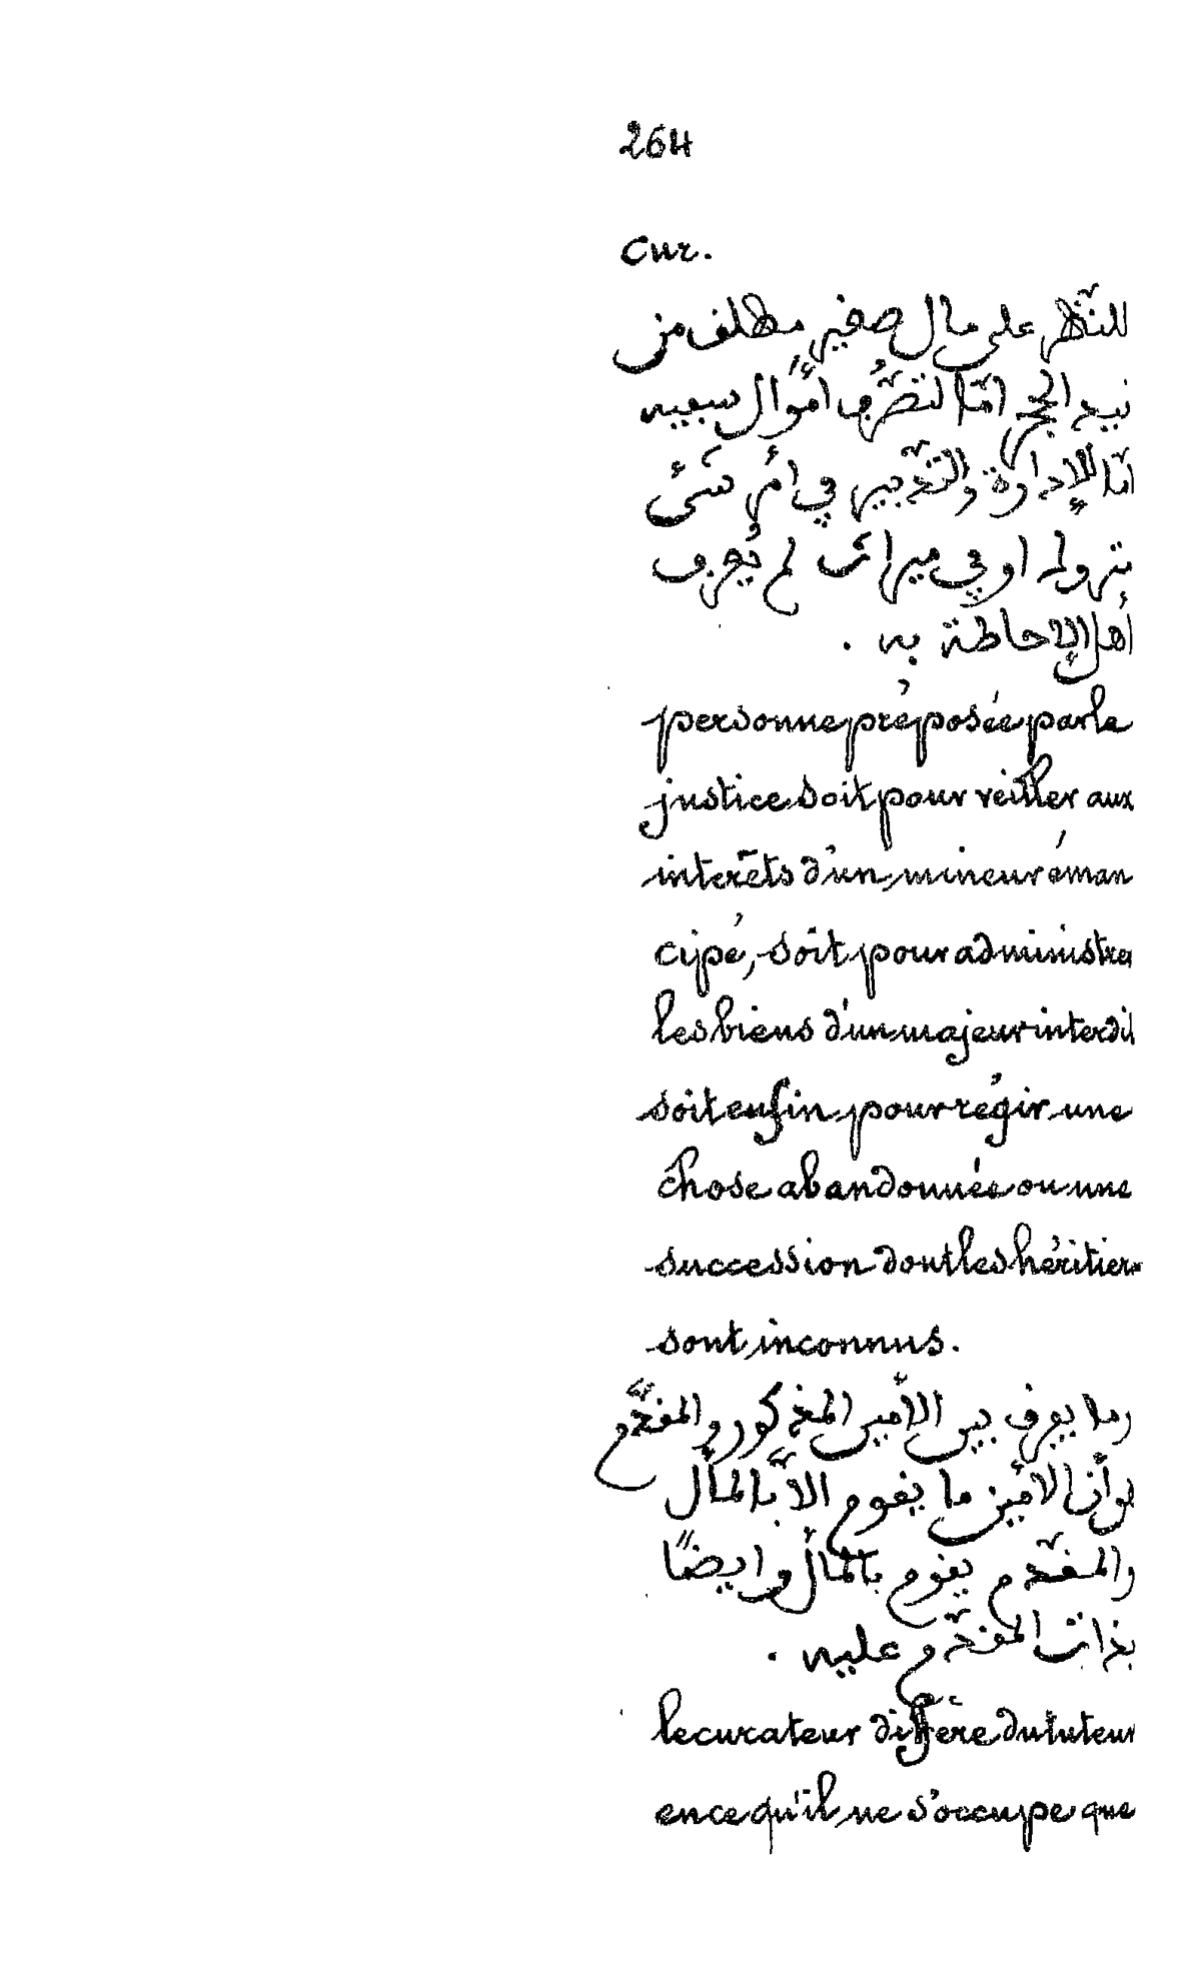 264
Cur.
للنّظر على مال صغير مطلف من
امّا لتصرُّف أمْوال سبيه
امّا للإدارة والتّدبير في أمْر شئ
متروك او في ميراث لم يُعرف
أهل الإحاطة به .
personne préposée par la
justice soit pour veiller aux
interêts d'un mineur éman
cipé, soit pour administrer
les biens d'un majeur interdit
soit enfin pour régir une
chose abandonnée ou une
succession dont les héritiers
sont inconnus.
وما يعرف بين الأمين المذكور والمفدّم
هو أن الأمين ما يفوم الاّ بالمال
والمفدّم يفوم بالمال وايضًا
بذات المفدّم عليه .
le curateur diffère du tuteur
en ce qu'il ne s'occupe que